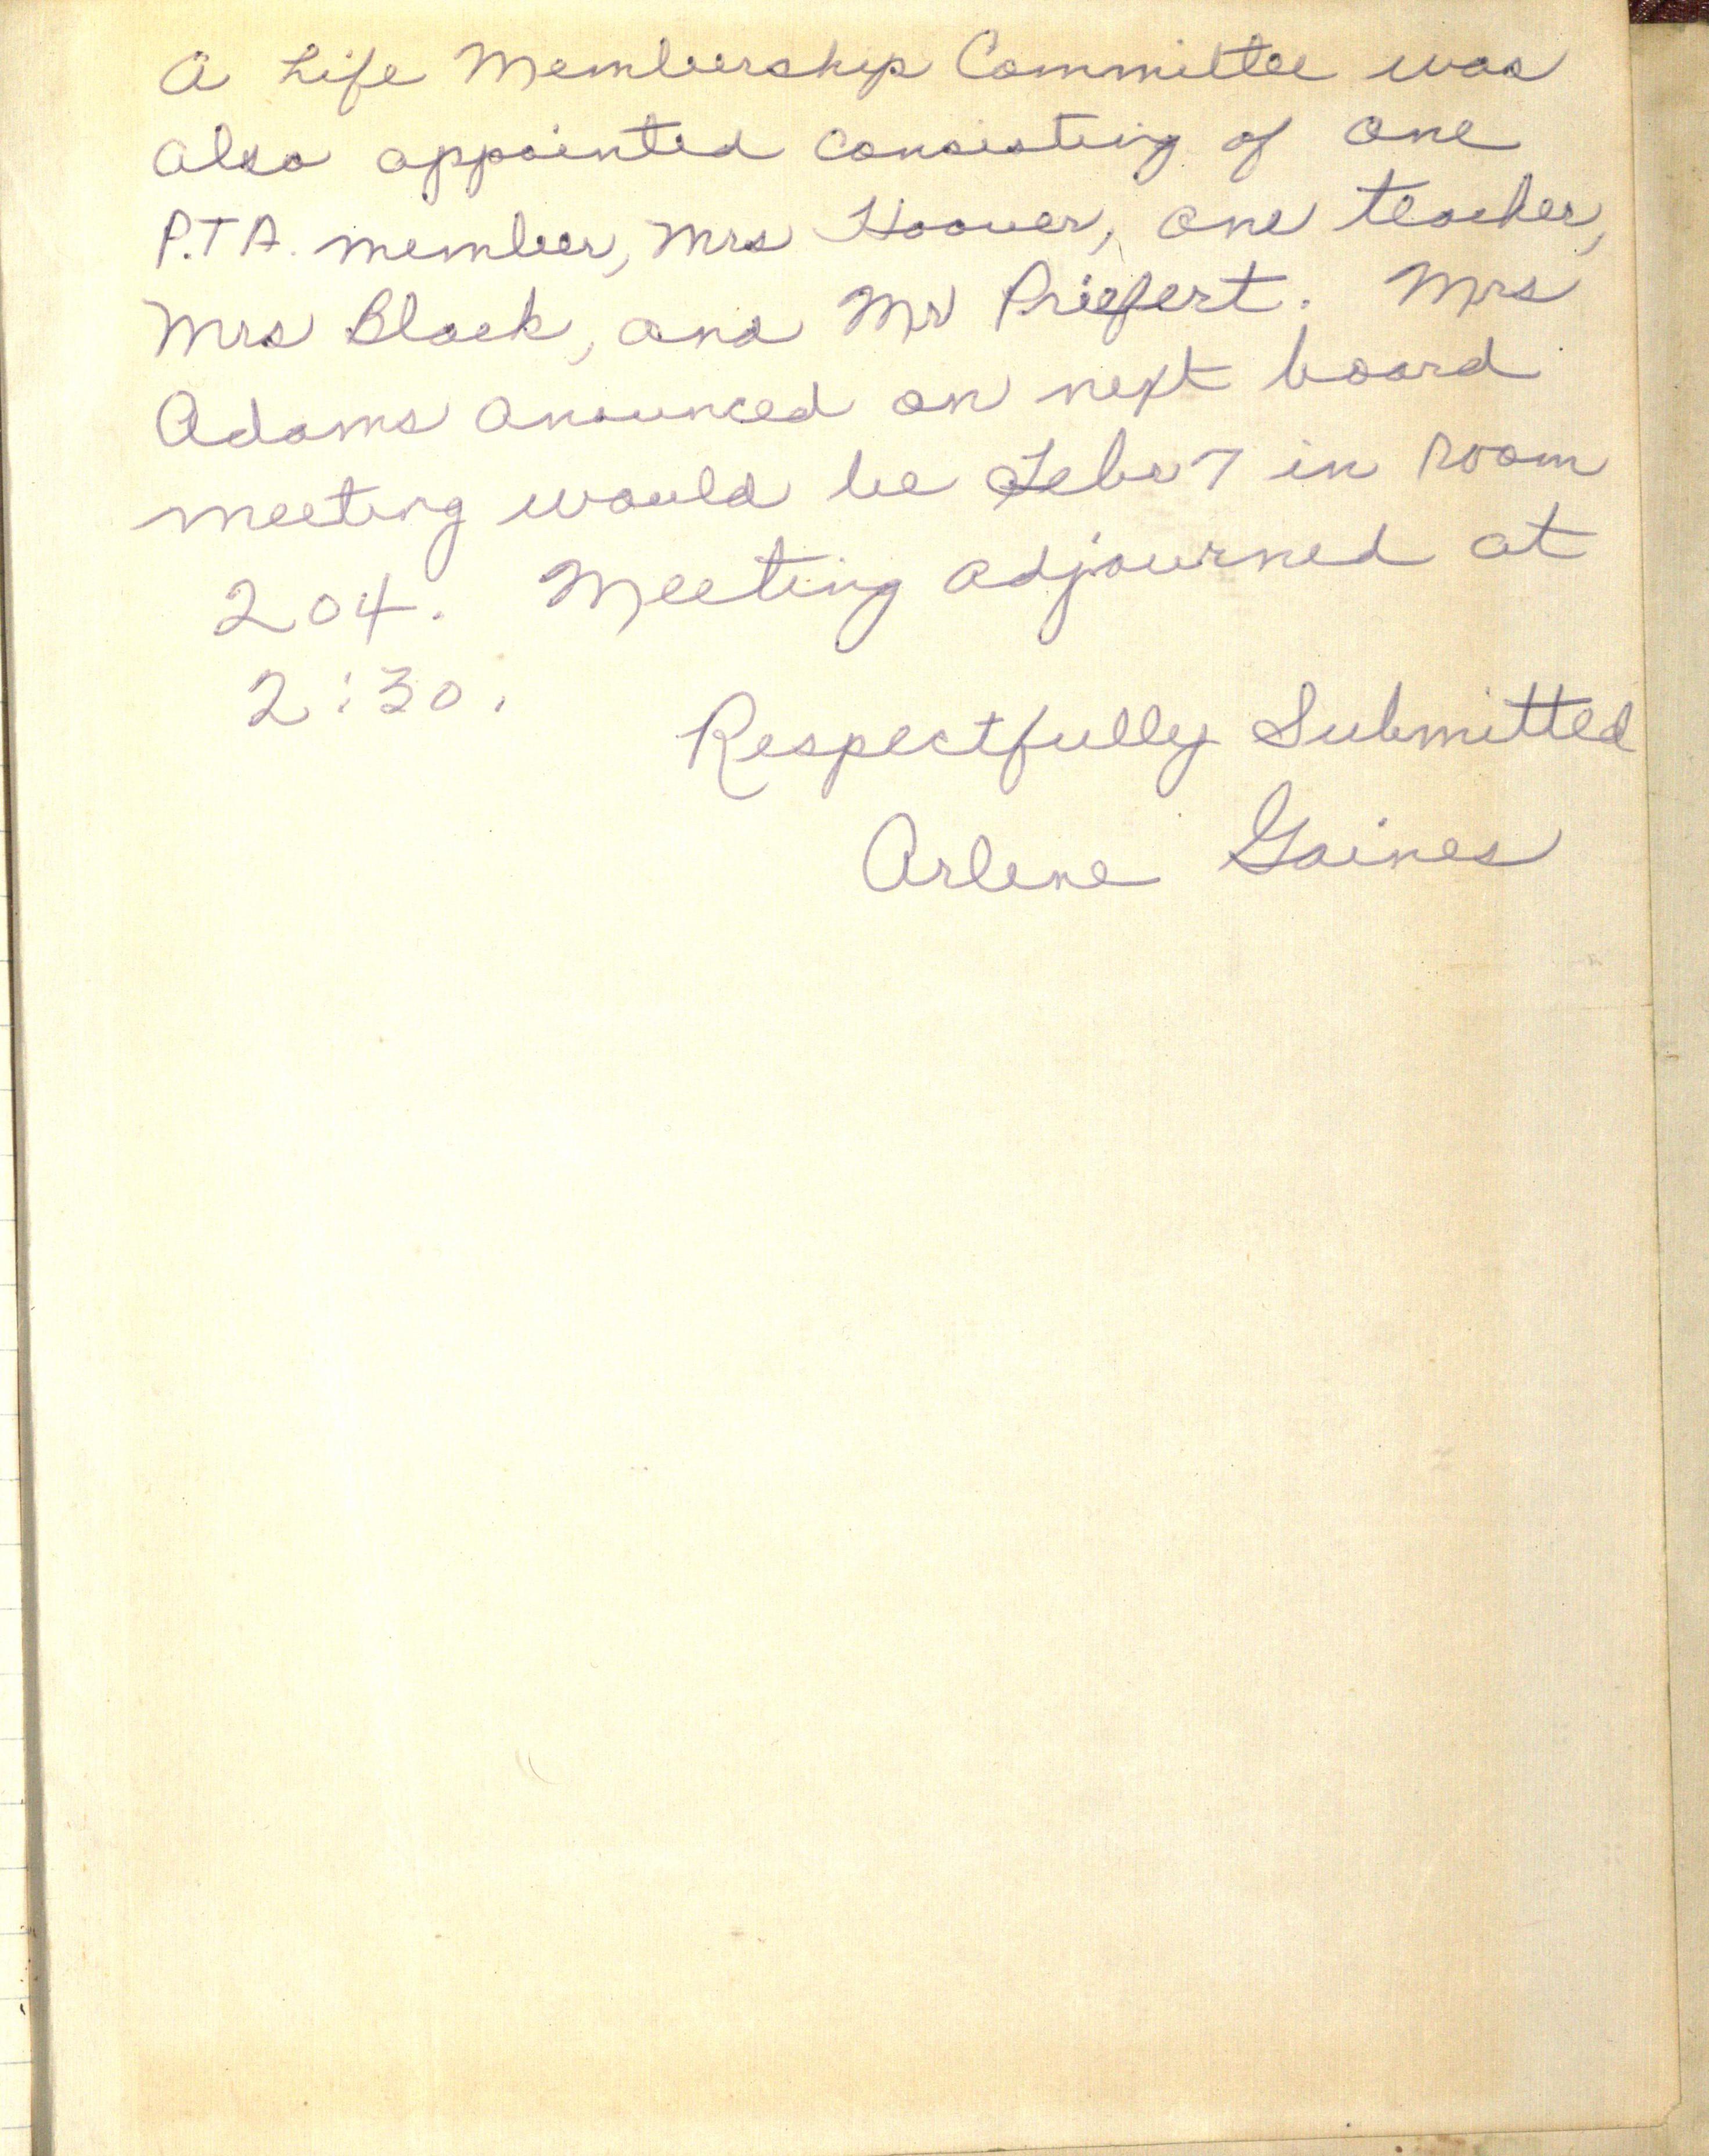 A Life Membership Committee was
also appointed consisting of one
P.T.A. member, Mrs Hoover, one teacher,
Mrs Black, and Mr Priefert. Mrs
Adams anounced on next board
meeting would be Febr 7 in room
204. Meeting adjourned at
2:30.
Respectfully Submitted
Arlene Gaines